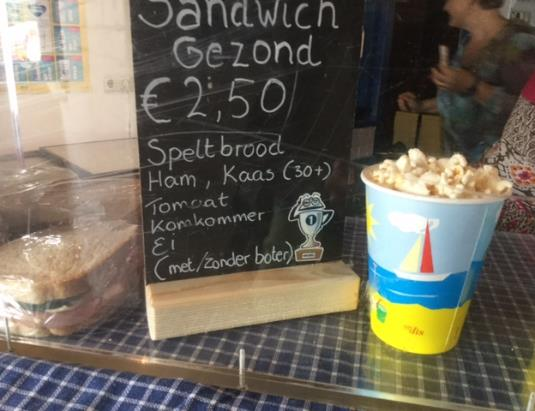 Sandwich
Gezond
€ 2,50
Speltbrood
Ham, Kaas (30+)
Tomaat
Komkommer
Ei
(met/zonder boter)
1